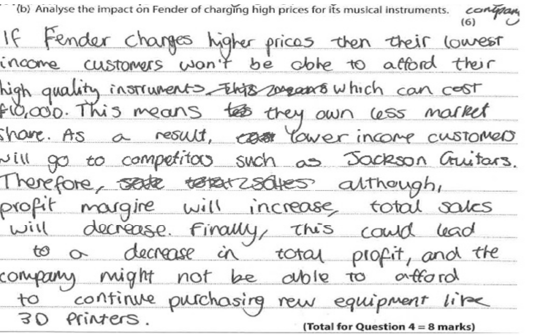 (b) Analyse the impact on Fender of charging high prices for its musical instruments. company
(6)
If Fender charges higher prices then their lowest
income customers won't be able to afford their
high quality instruments. which can cost
£10,000. This means they own less market
share. As a result, lower income customers
will go to competitos such as Jackson Guitars.
Therefore, although,
profit margine will increase, total sales
will decrease. Finally, this could lead
to a decrease in total profit, and the
company might not be able to afford
to continue purchasing new equipment like
3D Printers.
(Total for Question 4 = 8 marks)